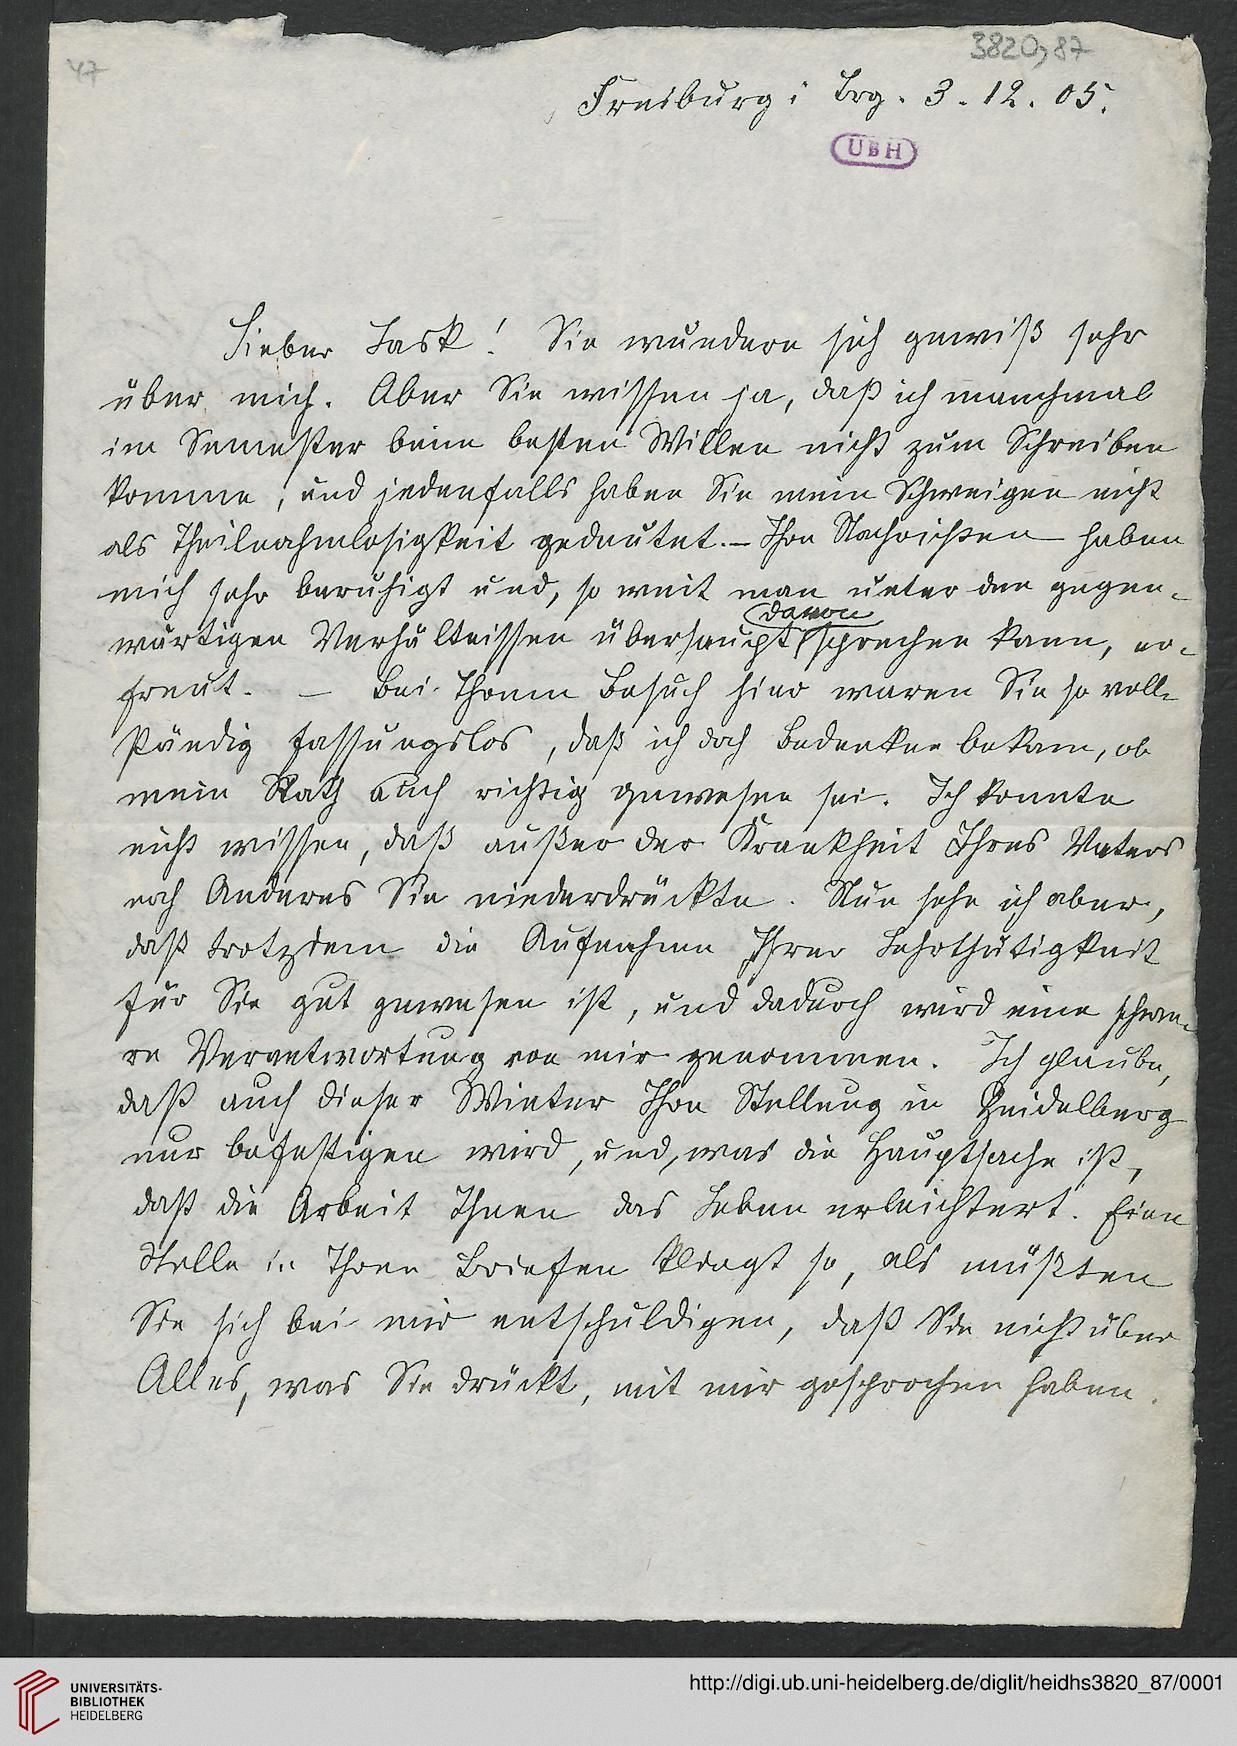 47
3820,87
Freiburg i Brg. 3.12.05.
UBH
Lieber Lask! Sie wundern sich gewiß sehr
über mich. Aber Sie wissen ja, daß ich manchmal
im Semester beim besten Willen nicht zum Schreiben
komme, und jedenfalls haben Sie mein Schweigen nicht
als Theilnahmlosigkeit gedeutet. – Ihre Nachrichten haben
mich sehr beruhigt und, so weit man unter den gegen-
davon
wärtigen Verhältnissen überhaupt sprechen kann, er-
freut. – Bei Ihrem Besuch hier waren Sie so voll-
ständig fassungslos, daß ich doch Bedenken bekam, ob
mein Rath auch richtig gewesen sei. Ich konnte
nicht wissen, daß außer der Krankheit Ihres Vaters
noch Anderes Sie niederdrückte. Nun sehe ich aber,
daß trotzdem die Aufnahme Ihrer Lehrthätigkeit
für Sie gut gewesen ist, und dadurch wird eine schwe-
re Verantwortung von mir genommen. Ich glaube,
daß auch dieser Winter Ihre Stellung in Heidelberg
nur befestigen wird, und, was die Hauptsache ist,
daß die Arbeit Ihnen das Leben erleichtert. Eine
Stelle in Ihren Briefen klingt so, als müßten
Sie sich bei mir entschuldigen, daß Sie nicht über
Alles, was Sie drückt, mit mir gesprochen haben.
UNIVERSITÄTS-
BIBLIOTHEK
HEIDELBERG
http://digi.ub.uni-heidelberg.de/diglit/heidhs3820_87/0001